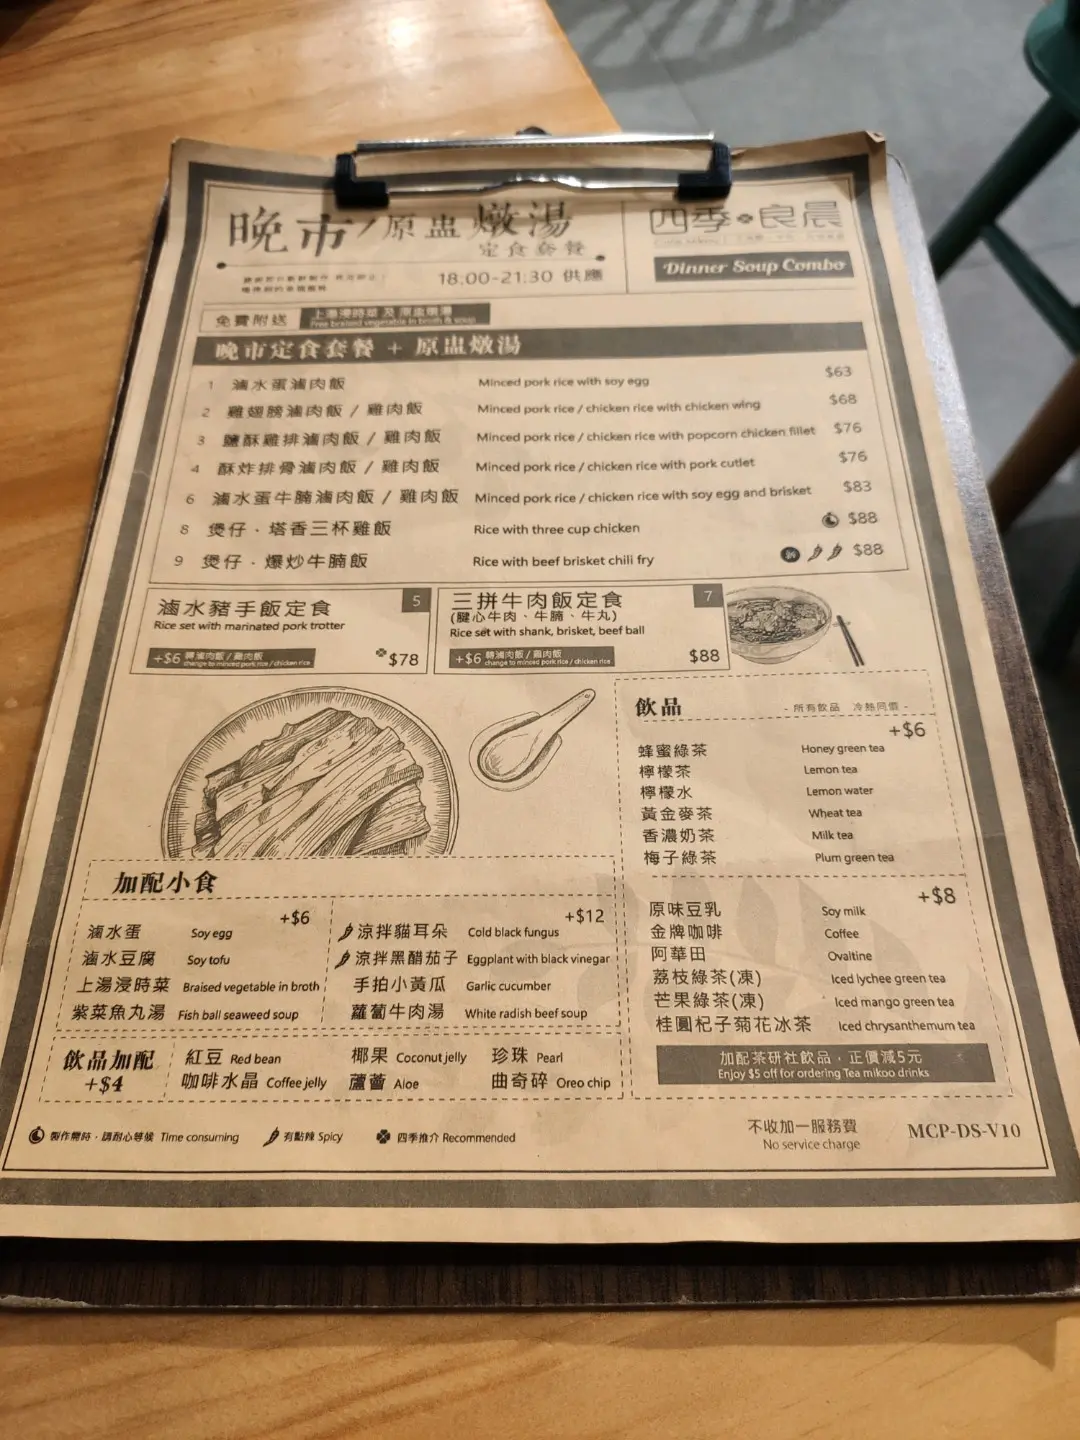 晚市/原盅燉湯
定食套餐
18:00-21:30 供應
四季良晨
Dinner Soup Combo
免費附送 上湯浸時菜 及 原盅燉湯
Free braised vegetable in broth & soup
晚市定食套餐 + 原盅燉湯
1 滷水蛋滷肉飯 Minced pork rice with soy egg $63
2 雞翅膀滷肉飯 / 雞肉飯 Minced pork rice / chicken rice with chicken wing $68
3 鹽酥雞排滷肉飯 / 雞肉飯 Minced pork rice / chicken rice with popcorn chicken fillet $76
4 酥炸排骨滷肉飯 / 雞肉飯 Minced pork rice / chicken rice with pork cutlet $76
6 滷水蛋牛腩滷肉飯 / 雞肉飯 Minced pork rice / chicken rice with soy egg and brisket $83
8 煲仔 · 塔香三杯雞飯 Rice with three cup chicken $88
9 煲仔 · 爆炒牛腩飯 Rice with beef brisket chili fry $88
滷水豬手飯定食 5
Rice set with marinated pork trotter
+$6 轉滷肉飯 / 雞肉飯
change to minced pork rice / chicken rice
$78
三拼牛肉飯定食 7
(腱心牛肉、牛腩、牛丸)
Rice set with shank, brisket, beef ball
+$6 轉滷肉飯 / 雞肉飯
change to minced pork rice / chicken rice
$88
飲品 - 所有飲品 冷熱同價 -
+$6
蜂蜜綠茶 Honey green tea
檸檬茶 Lemon tea
檸檬水 Lemon water
黃金麥茶 Wheat tea
香濃奶茶 Milk tea
梅子綠茶 Plum green tea
+$8
原味豆乳 Soy milk
金牌咖啡 Coffee
阿華田 Ovaltine
荔枝綠茶(凍) Iced lychee green tea
芒果綠茶(凍) Iced mango green tea
桂圓杞子菊花冰茶 Iced chrysanthemum tea
加配茶研社飲品，正價減5元
Enjoy $5 off for ordering Tea mikoo drinks
加配小食
+$6
滷水蛋 Soy egg
滷水豆腐 Soy tofu
上湯浸時菜 Braised vegetable in broth
紫菜魚丸湯 Fish ball seaweed soup
+$12
涼拌貓耳朵 Cold black fungus
涼拌黑醋茄子 Eggplant with black vinegar
手拍小黃瓜 Garlic cucumber
蘿蔔牛肉湯 White radish beef soup
飲品加配
+$4
紅豆 Red bean 椰果 Coconut jelly 珍珠 Pearl
咖啡水晶 Coffee jelly 蘆薈 Aloe 曲奇碎 Oreo chip
製作需時 · 請耐心等候 Time consuming 有點辣 Spicy 四季推介 Recommended
不收加一服務費
No service charge
MCP-DS-V10